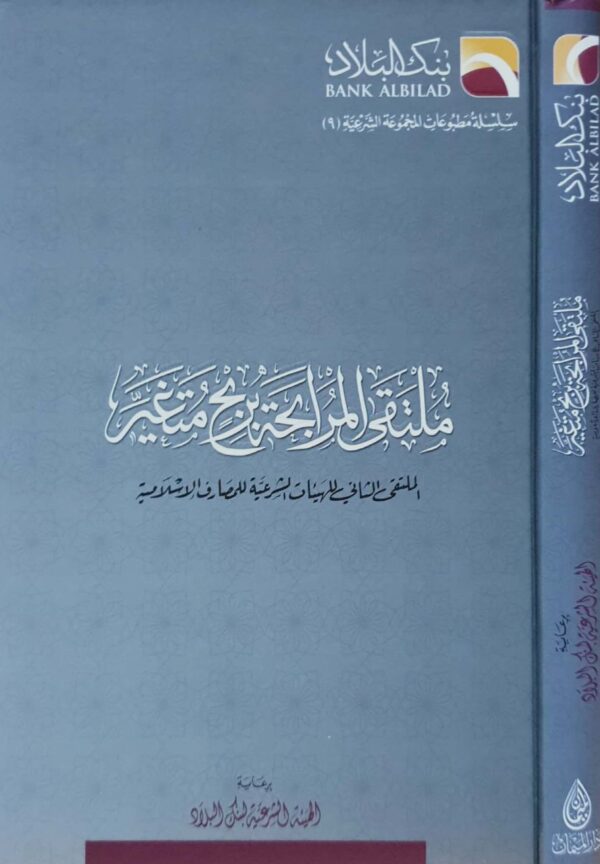 بنك البلاد
BANK ALBILAD
سِلسِلَة مَطبُوعَات المَجمُوعَة الشَّرعِيَّة (٩)
مُلتَقَى المُرَابَحَة بِرِبحٍ مُتَغَيِّر
الملتقى الثاني للهيئات الشرعيَّة للمصارف الإسلامية
برعَاية
الهيئة الشرعيَّة لبنك البلاد
بنك البلاد
BANK ALBILAD
مُلتَقَى المُرَابَحَة بِرِبحٍ مُتَغَيِّر
برعَاية
الهيئة الشرعيَّة لبنك البلاد
دار الميمان